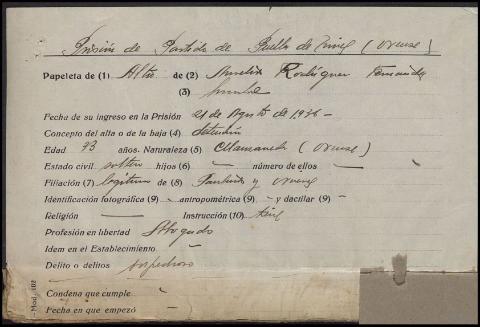 Prisión de Partido de Puebla de Trives (Orense)
Papeleta de (1) Alta de (2) Aurelio Rodríguez Fernández
(3)
Fecha de su ingreso en la Prisión 21 de Agosto de 1936 -
Concepto del alta o de la baja (4) Detenido
Edad 23 años. Naturaleza (5) (Orense)
Estado civil soltero hijos (6) — número de ellos —
Filiación (7) legítima de (8) y
Identificación fotográfica (9) - antropométrica (9) - y dactilar (9) -
Religión — Instrucción (10)
Profesión en libertad Abogado
Idem en el Establecimiento —
Delito o delitos sospechoso
Condena que cumple -
Fecha en que empezó -
Mod. 102